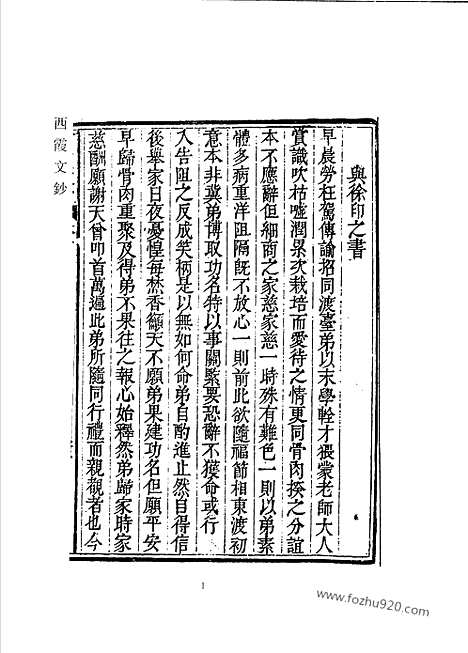 與徐印之書
早晨勞枉駕傳諭招同渡臺弟以末學輇才猥蒙老師大人
賞識吹枯噓潤累次栽培而愛待之情更同骨肉揆之分誼
本不應辭但細商之家慈家慈一時殊有難色一則以弟素
體多病重洋阻隔旣不放心一則前此欲隨福節相東渡初
意本非冀弟博取功名特以事關緊要恐辭不獲命或行
人告阻之反成笑柄是以無如何命弟自酌進止然自得信
後舉家日夜憂惶每焚香籲天不願弟果建功名但願平安
早歸骨肉重聚及得弟不果往之報心始釋然弟歸家時家
慈酬願謝天曾叩首萬遍此弟所隨同行禮而親觀者也今
西霞文鈔
1
www.fozhu920.com